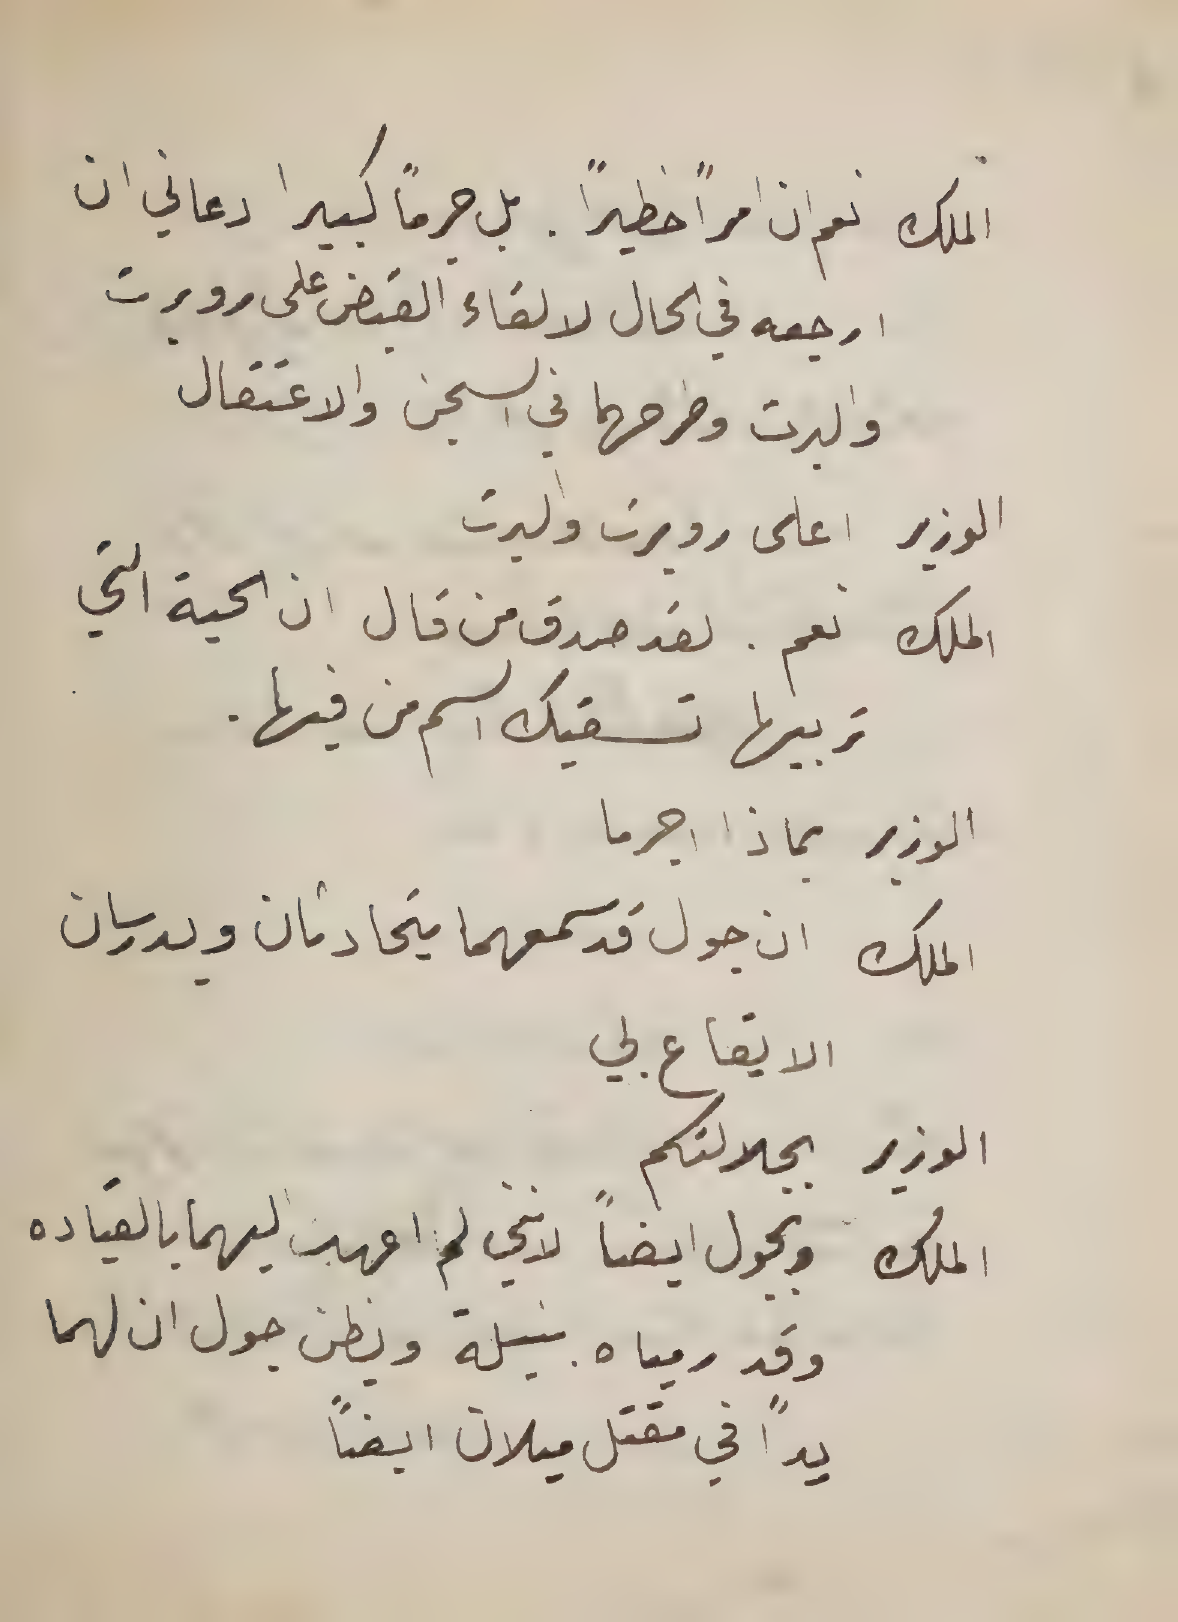 الملك نعم ان امراً خطيراً . بل جرماً كبيرا دعاني ان
ارجعه في الحال لالقاء القبض على روبرت
والبرت وطرحهما في السجن والاعتقال
الوزير اعلى روبرت والبرت
الملك نعم . لقد صدق من قال ان الحية التي
تربيها تسقيك السم من فيها .
الوزير بماذا اجرما
الملك ان جول قد سمعهما يتحادثان ويدرسان
الايقاع بي
الوزير بجلالتكم
الملك وبجول ايضاً لانني لم اعهد اليهما بالقياده
وقد رمياه بنبلة ويظن جول ان لهما
يداً في مقتل ميلان ايضاً